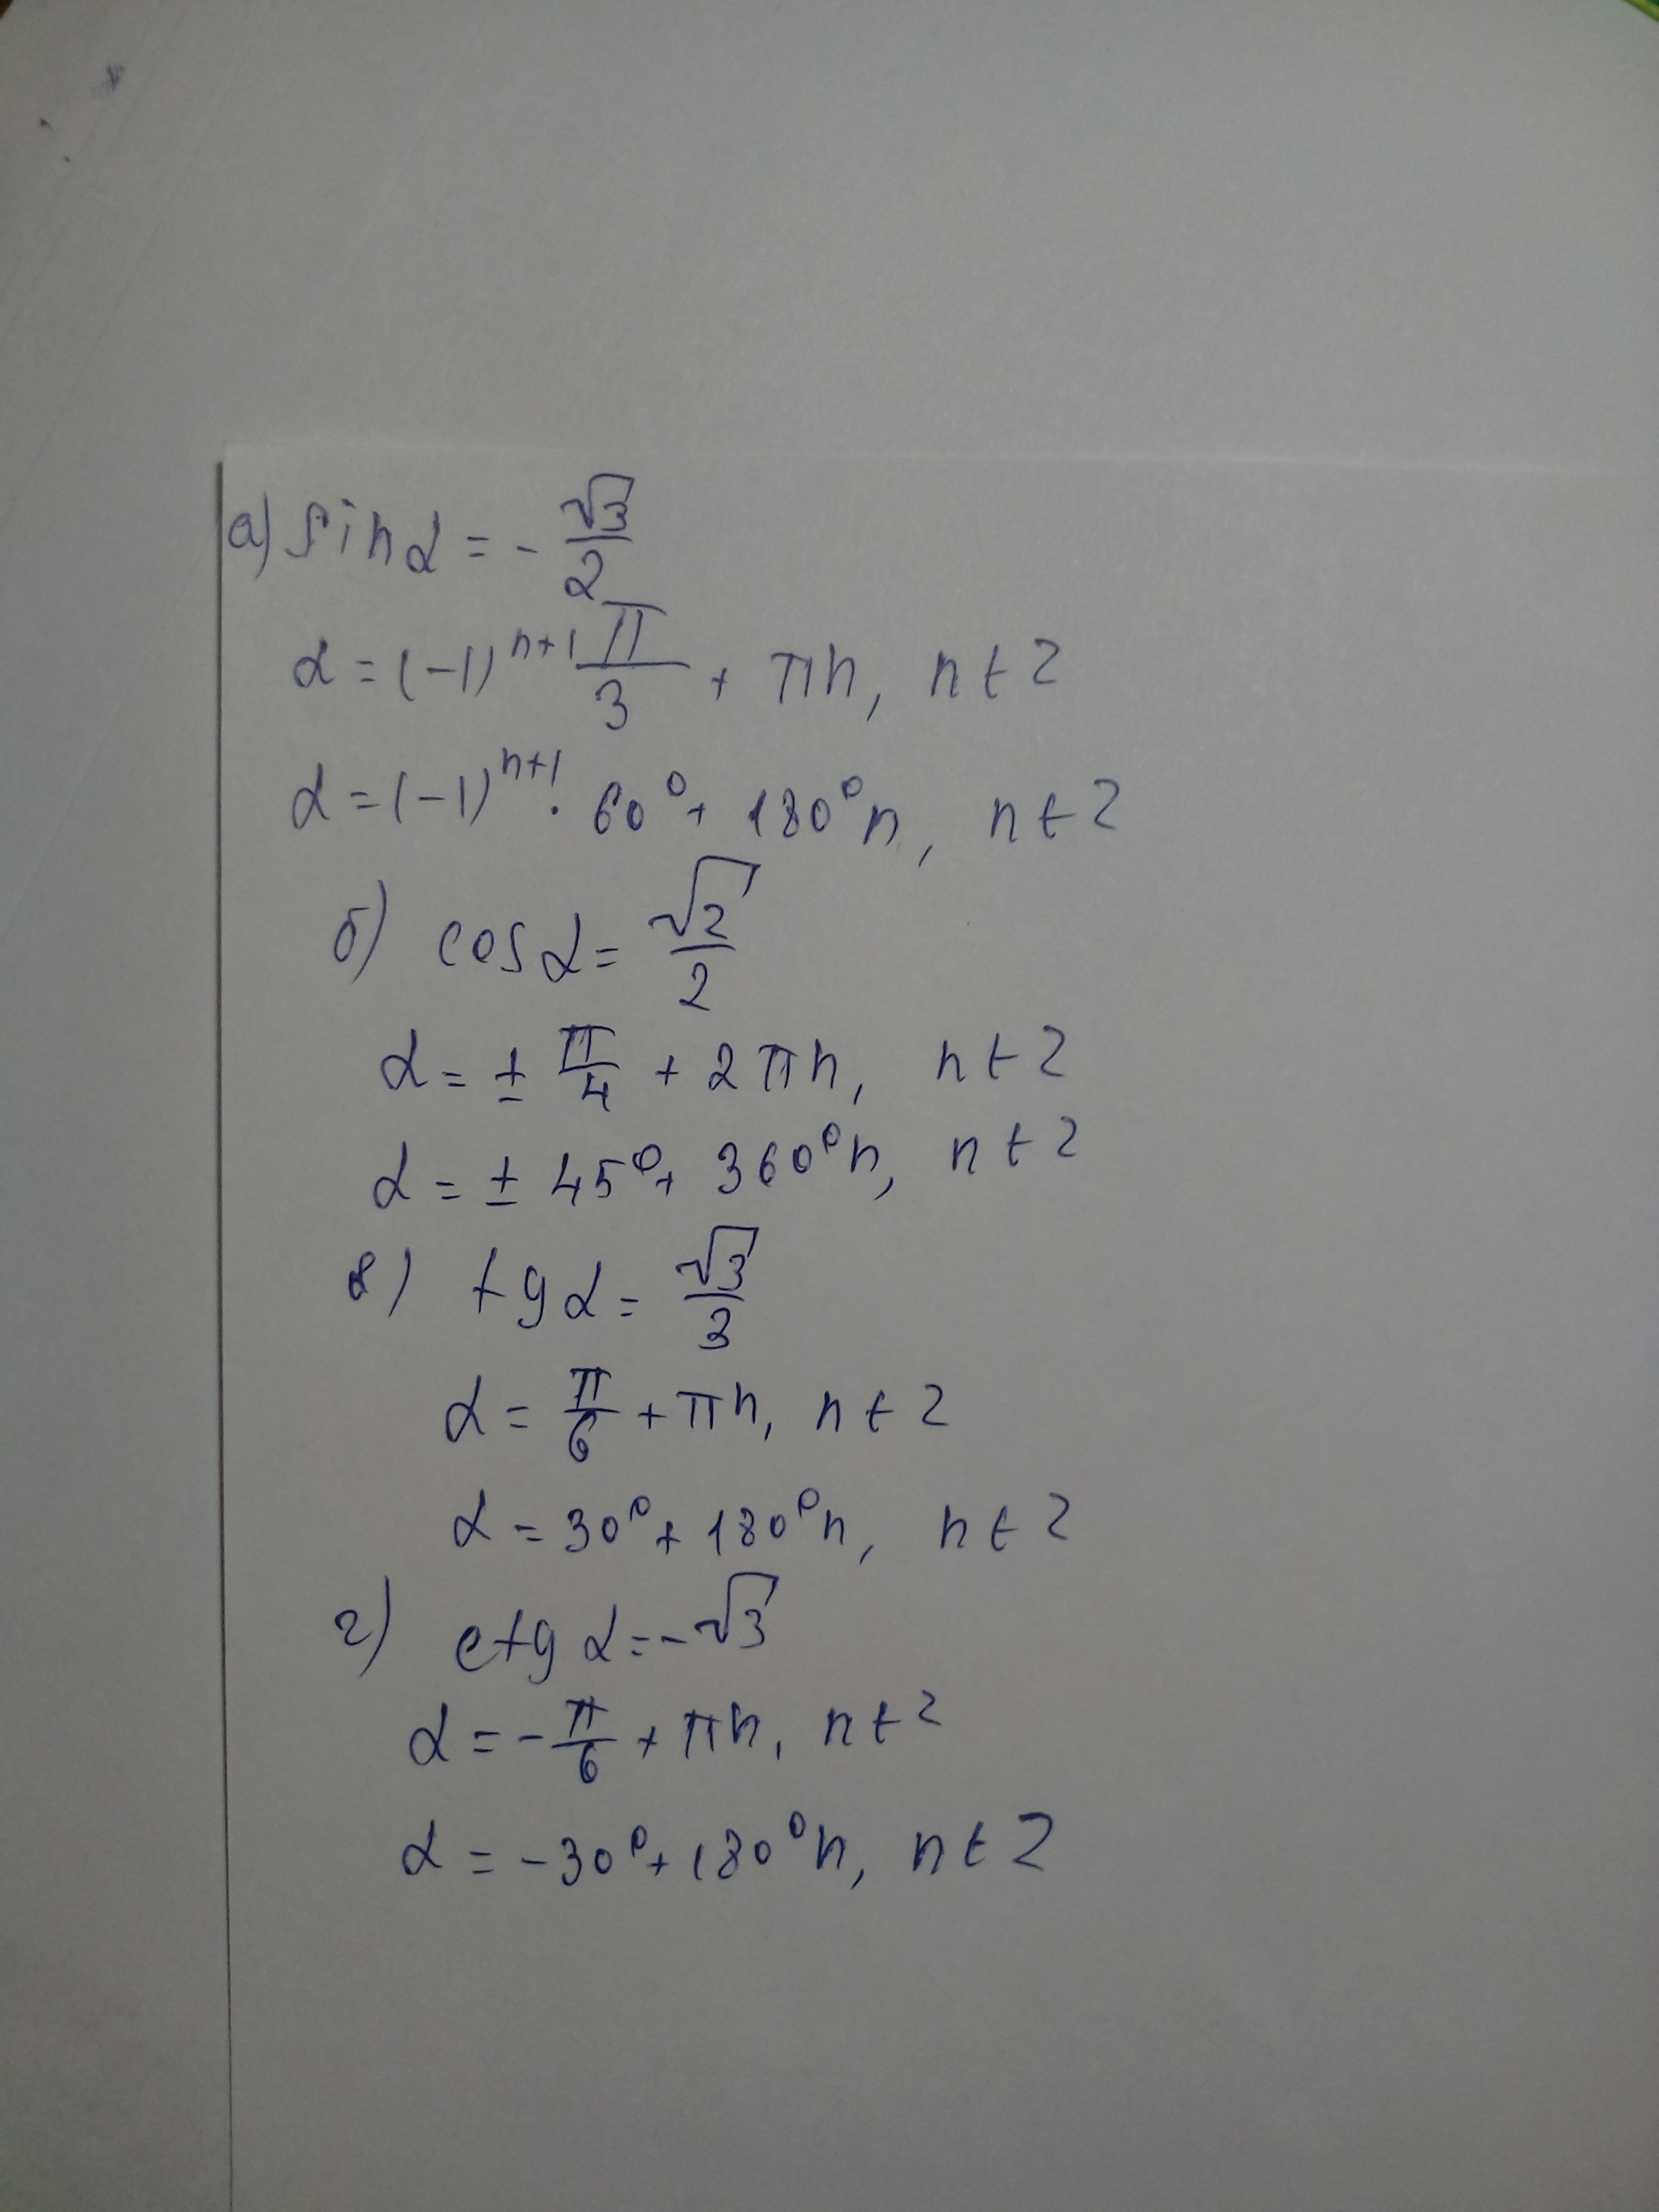 а) sin α = - √3/2
α = (-1)ⁿ⁺¹ π/3 + πn, n ∈ Z
α = (-1)ⁿ⁺¹ · 60° + 180°n, n ∈ Z
б) cos α = √2/2
α = ± π/4 + 2πn, n ∈ Z
α = ± 45° + 360°n, n ∈ Z
в) tg α = √3/3
α = π/6 + πn, n ∈ Z
α = 30° + 180°n, n ∈ Z
г) ctg α = -√3
α = - π/6 + πn, n ∈ Z
α = -30° + 180°n, n ∈ Z